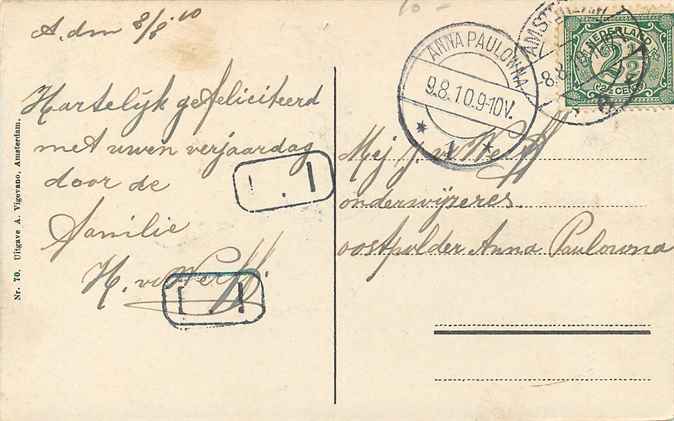 A.dm 8/8 '10
Hartelijk gefeliciteerd
met uwen verjaardag
door de
familie
H. vd Werff.
Nr. 70. Uitgave A. Vigevano, Amsterdam.
10 -
ANNA PAULOWNA
9.8.10.9-10V.
* 1 *
AMSTERDAM
8.8
NEDERLAND
2½
2½ CENT
Mej j. v d Werff
onderwijzeres.
oostpolder Anna Paulowna